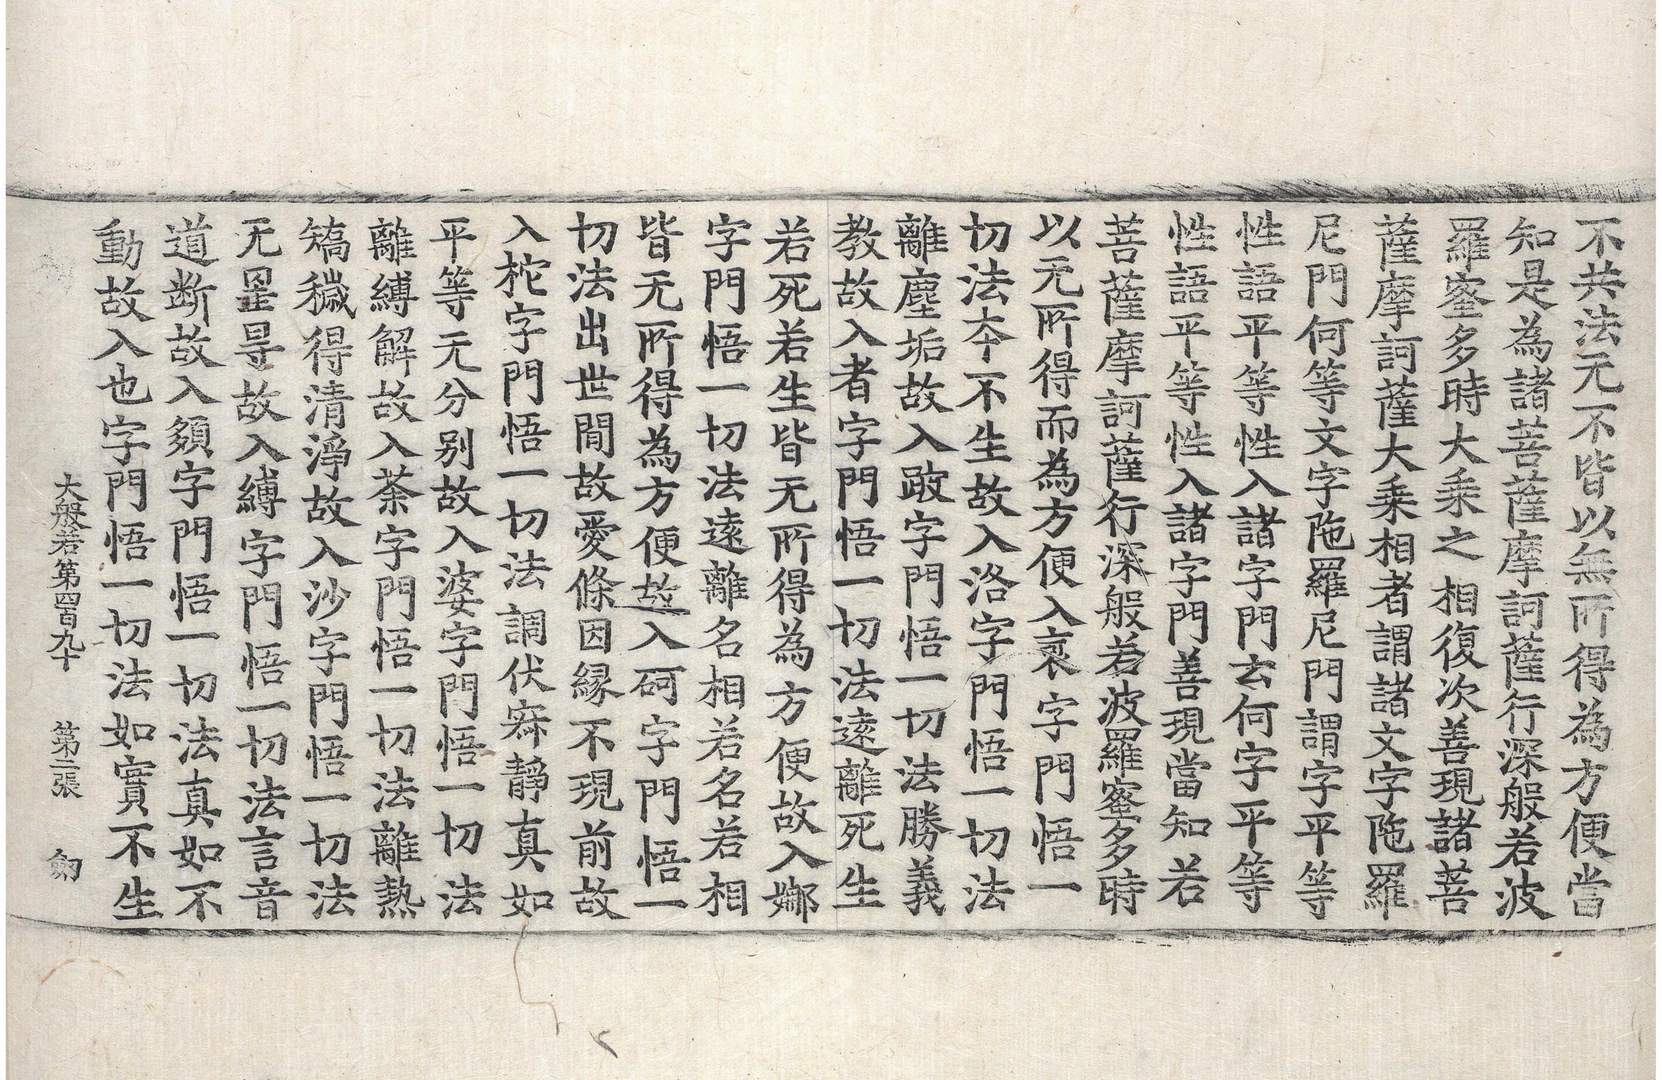 不共法无不皆以無所得為方便當
知是為諸菩薩摩訶薩行深般若波
羅蜜多時大乘之相復次善現諸菩
薩摩訶薩大乘相者謂諸文字陁羅
尼門何等文字陁羅尼門謂字平等
性語平等性入諸字門云何字平等
性語平等性入諸字門善現當知若
菩薩摩訶薩行深般若波羅蜜多時
以无所得而為方便入裒字門悟一
切法本不生故入洛字門悟一切法
離塵垢故入跛字門悟一切法勝義
教故入者字門悟一切法遠離死生
若死若生皆无所得為方便故入娜
字門悟一切法遠離名相若名若相
皆无所得為方便故入砢字門悟一
切法出世間故愛條因緣不現前故
入柁字門悟一切法調伏寂靜真如
平等无分别故入婆字門悟一切法
離縛解故入荼字門悟一切法離熱
矯穢得清淨故入沙字門悟一切法
无罣㝵故入縛字門悟一切法言音
道断故入頞字門悟一切法真如不
動故入也字門悟一切法如實不生
大般若第四百九十 第二張 劒